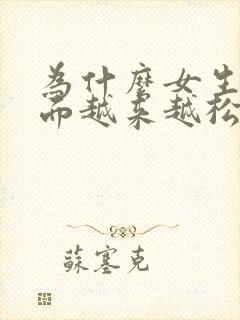 為什麼女生
而越来越松
蘇塞克